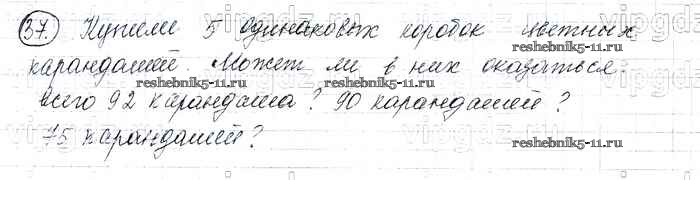 37. Купили 5 одинаковых коробок цветных
карандашей. Может ли в них оказаться
reshebnik5-11.ru reshebnik5-11.ru
всего 92 карандаша? 90 карандашей?
reshebnik5-11.ru
75 карандашей?
reshebnik5-11.ru